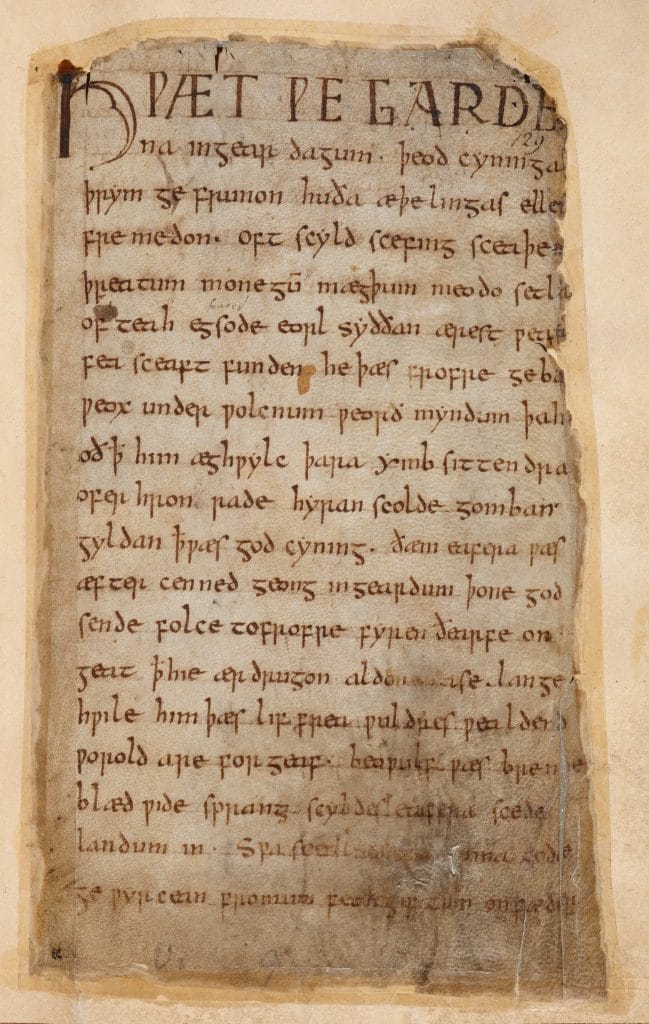 HǷÆT ǷE GARDE
129
na ingear dagum. þeod cyninga
þrym ge frunon huða æþelingas elle
fre medon. oft scyld scefing sceaþe
þreatum monegū mægþum meodo setla
of teah egsode eorl syððan ærest ƿear
fea sceaft funden he þæs frofre geba
ƿeox under ƿolcnum ƿeorð myndum þah
oð ꝥ him æghƿylc þara ymb sittendra
ofer hron rade hyran scolde gomban
gyldan ꝥ ƿæs god cyning. ðæm eafera ƿæs
æfter cenned geong ingeardum þone god
sende folce tofrofre fyren ðearfe on
geat ꝥ hie ær drugon lange
hƿile him þæs lif frea ƿuldres ƿealdend
ƿorold are for geaf. beoƿulf ƿæs breme
blæd ƿide sprang scyldes eafera scede
landum in. Sƿa gode
ge ƿyrcean fromum feoh giftum on fæder